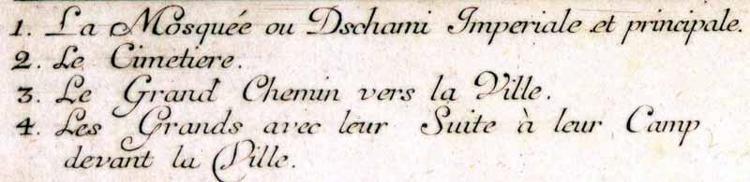 1. La Mosquée ou Dschami Imperiale et principale.
2. Le Cimetiere.
3. Le Grand Chemin vers la Ville.
4. Les Grands avec leur Suite à leur Camp
devant la Ville.